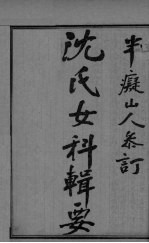 半癡山人叅訂
沈氏女科輯要